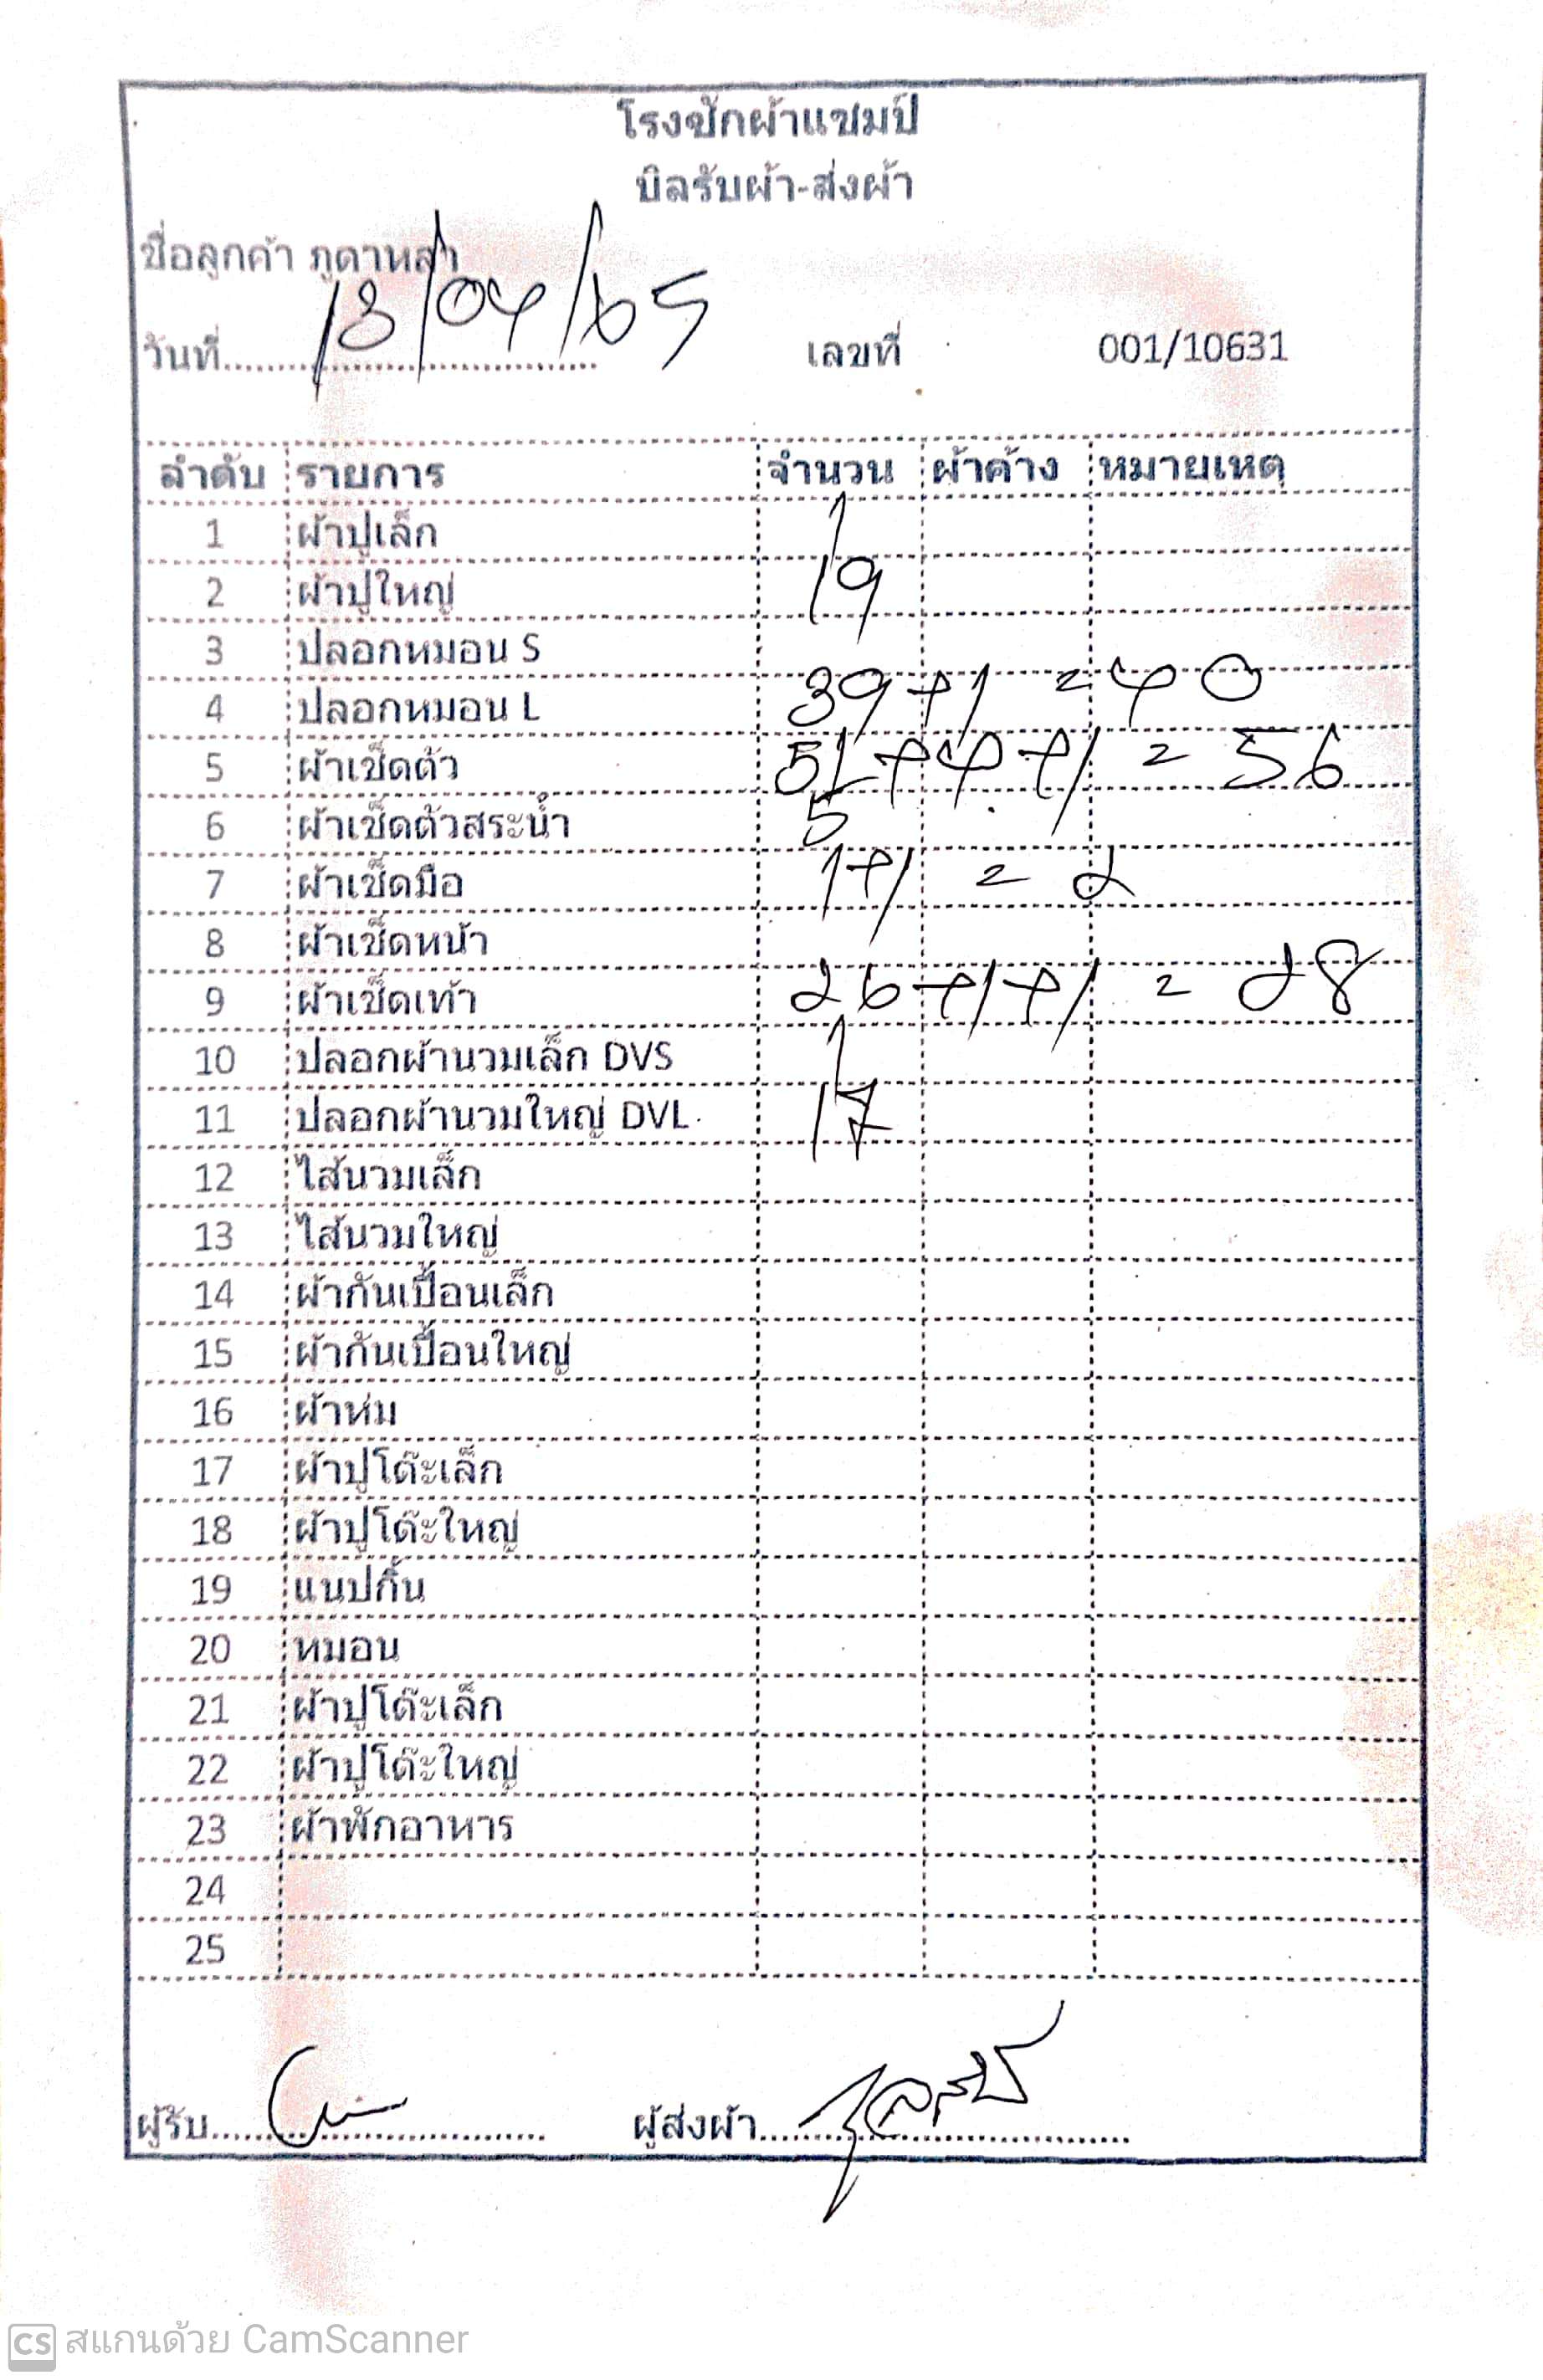 โรงซักผ้าแชมป์
บิลรับผ้า-ส่งผ้า
ชื่อลูกค้า ภูดาหลา
วันที่ 13/04/65 เลขที่ 001/10631
ลำดับ รายการ จำนวน ผ้าค้าง หมายเหตุ
1 ผ้าปูเล็ก 1
2 ผ้าปูใหญ่ 19
3 ปลอกหมอน S
4 ปลอกหมอน L 39+1 = 40
5 ผ้าเช็ดตัว 51+4+1 = 56
6 ผ้าเช็ดตัวสระน้ำ 5
7 ผ้าเช็ดมือ 1+1 = 2
8 ผ้าเช็ดหน้า
9 ผ้าเช็ดเท้า 26+1+1 = 28
10 ปลอกผ้านวมเล็ก DVS 1
11 ปลอกผ้านวมใหญ่ DVL 17
12 ไส้นวมเล็ก
13 ไส้นวมใหญ่
14 ผ้ากันเปื้อนเล็ก
15 ผ้ากันเปื้อนใหญ่
16 ผ้าห่ม
17 ผ้าปูโต๊ะเล็ก
18 ผ้าปูโต๊ะใหญ่
19 แนปกิ้น
20 หมอน
21 ผ้าปูโต๊ะเล็ก
22 ผ้าปูโต๊ะใหญ่
23 ผ้าพักอาหาร
24
25
ผู้รับ ผู้ส่งผ้า
CS สแกนด้วย CamScanner